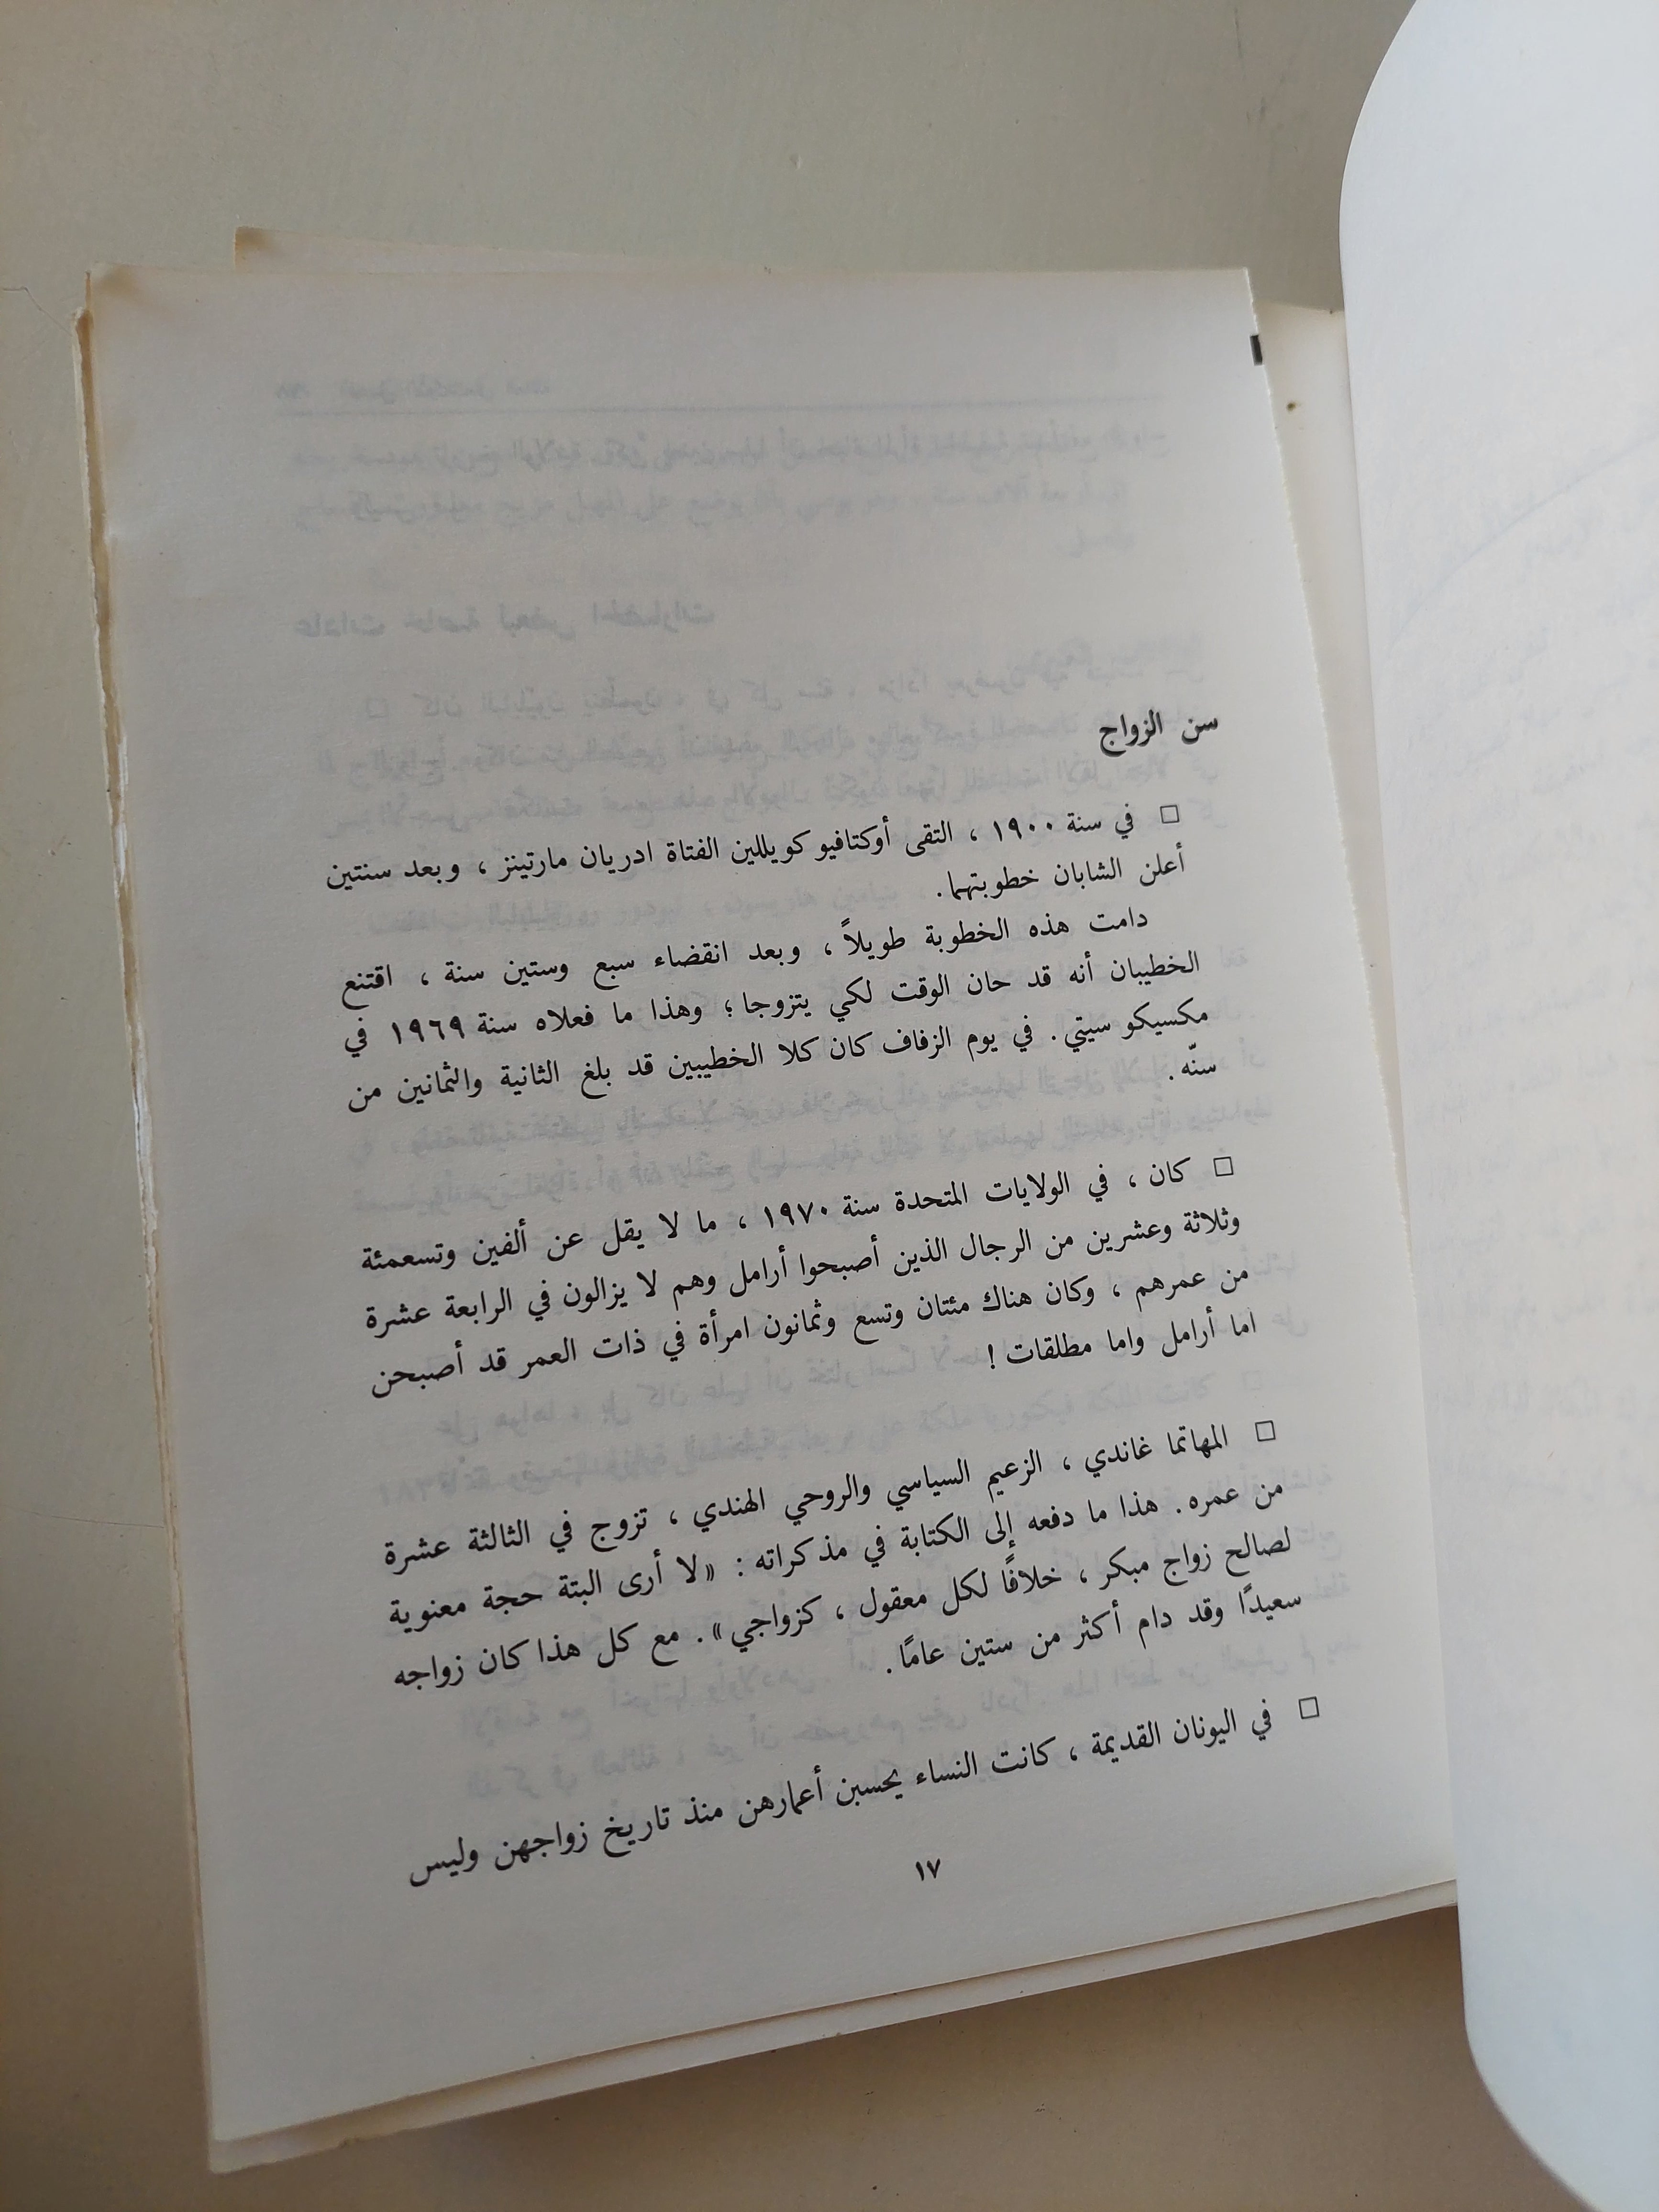 سن الزواج
□ في سنة ١٩٠٠ ، التقى أوكتافيو كويللين الفتاة ادريان مارتينز ، وبعد سنتين
أعلن الشابان خطوبتهما.
دامت هذه الخطوبة طويلاً ، وبعد انقضاء سبع وستين سنة ، اقتنع
الخطيبان أنه قد حان الوقت لكي يتزوجا ؛ وهذا ما فعلاه سنة ١٩٦٩ في
مكسيكو سيتي. في يوم الزفاف كان كلا الخطيبين قد بلغ الثانية والثمانين من
سنّه.
□ كان ، في الولايات المتحدة سنة ١٩٧٠ ، ما لا يقل عن ألفين وتسعمئة
وثلاثة وعشرين من الرجال الذين أصبحوا أرامل وهم لا يزالون في الرابعة عشرة
من عمرهم ، وكان هناك مئتان وتسع وثمانون امرأة في ذات العمر قد أصبحن
اما أرامل واما مطلقات !
□ المهاتما غاندي ، الزعيم السياسي والروحي الهندي ، تزوج في الثالثة عشرة
من عمره. هذا ما دفعه إلى الكتابة في مذكراته : «لا أرى البتة حجة معنوية
لصالح زواج مبكر ، خلافًا لكل معقول ، كزواجي». مع كل هذا كان زواجه
سعيدًا وقد دام أكثر من ستين عامًا.
□ في اليونان القديمة ، كانت النساء يحسبن أعمارهن منذ تاريخ زواجهن وليس
١٧